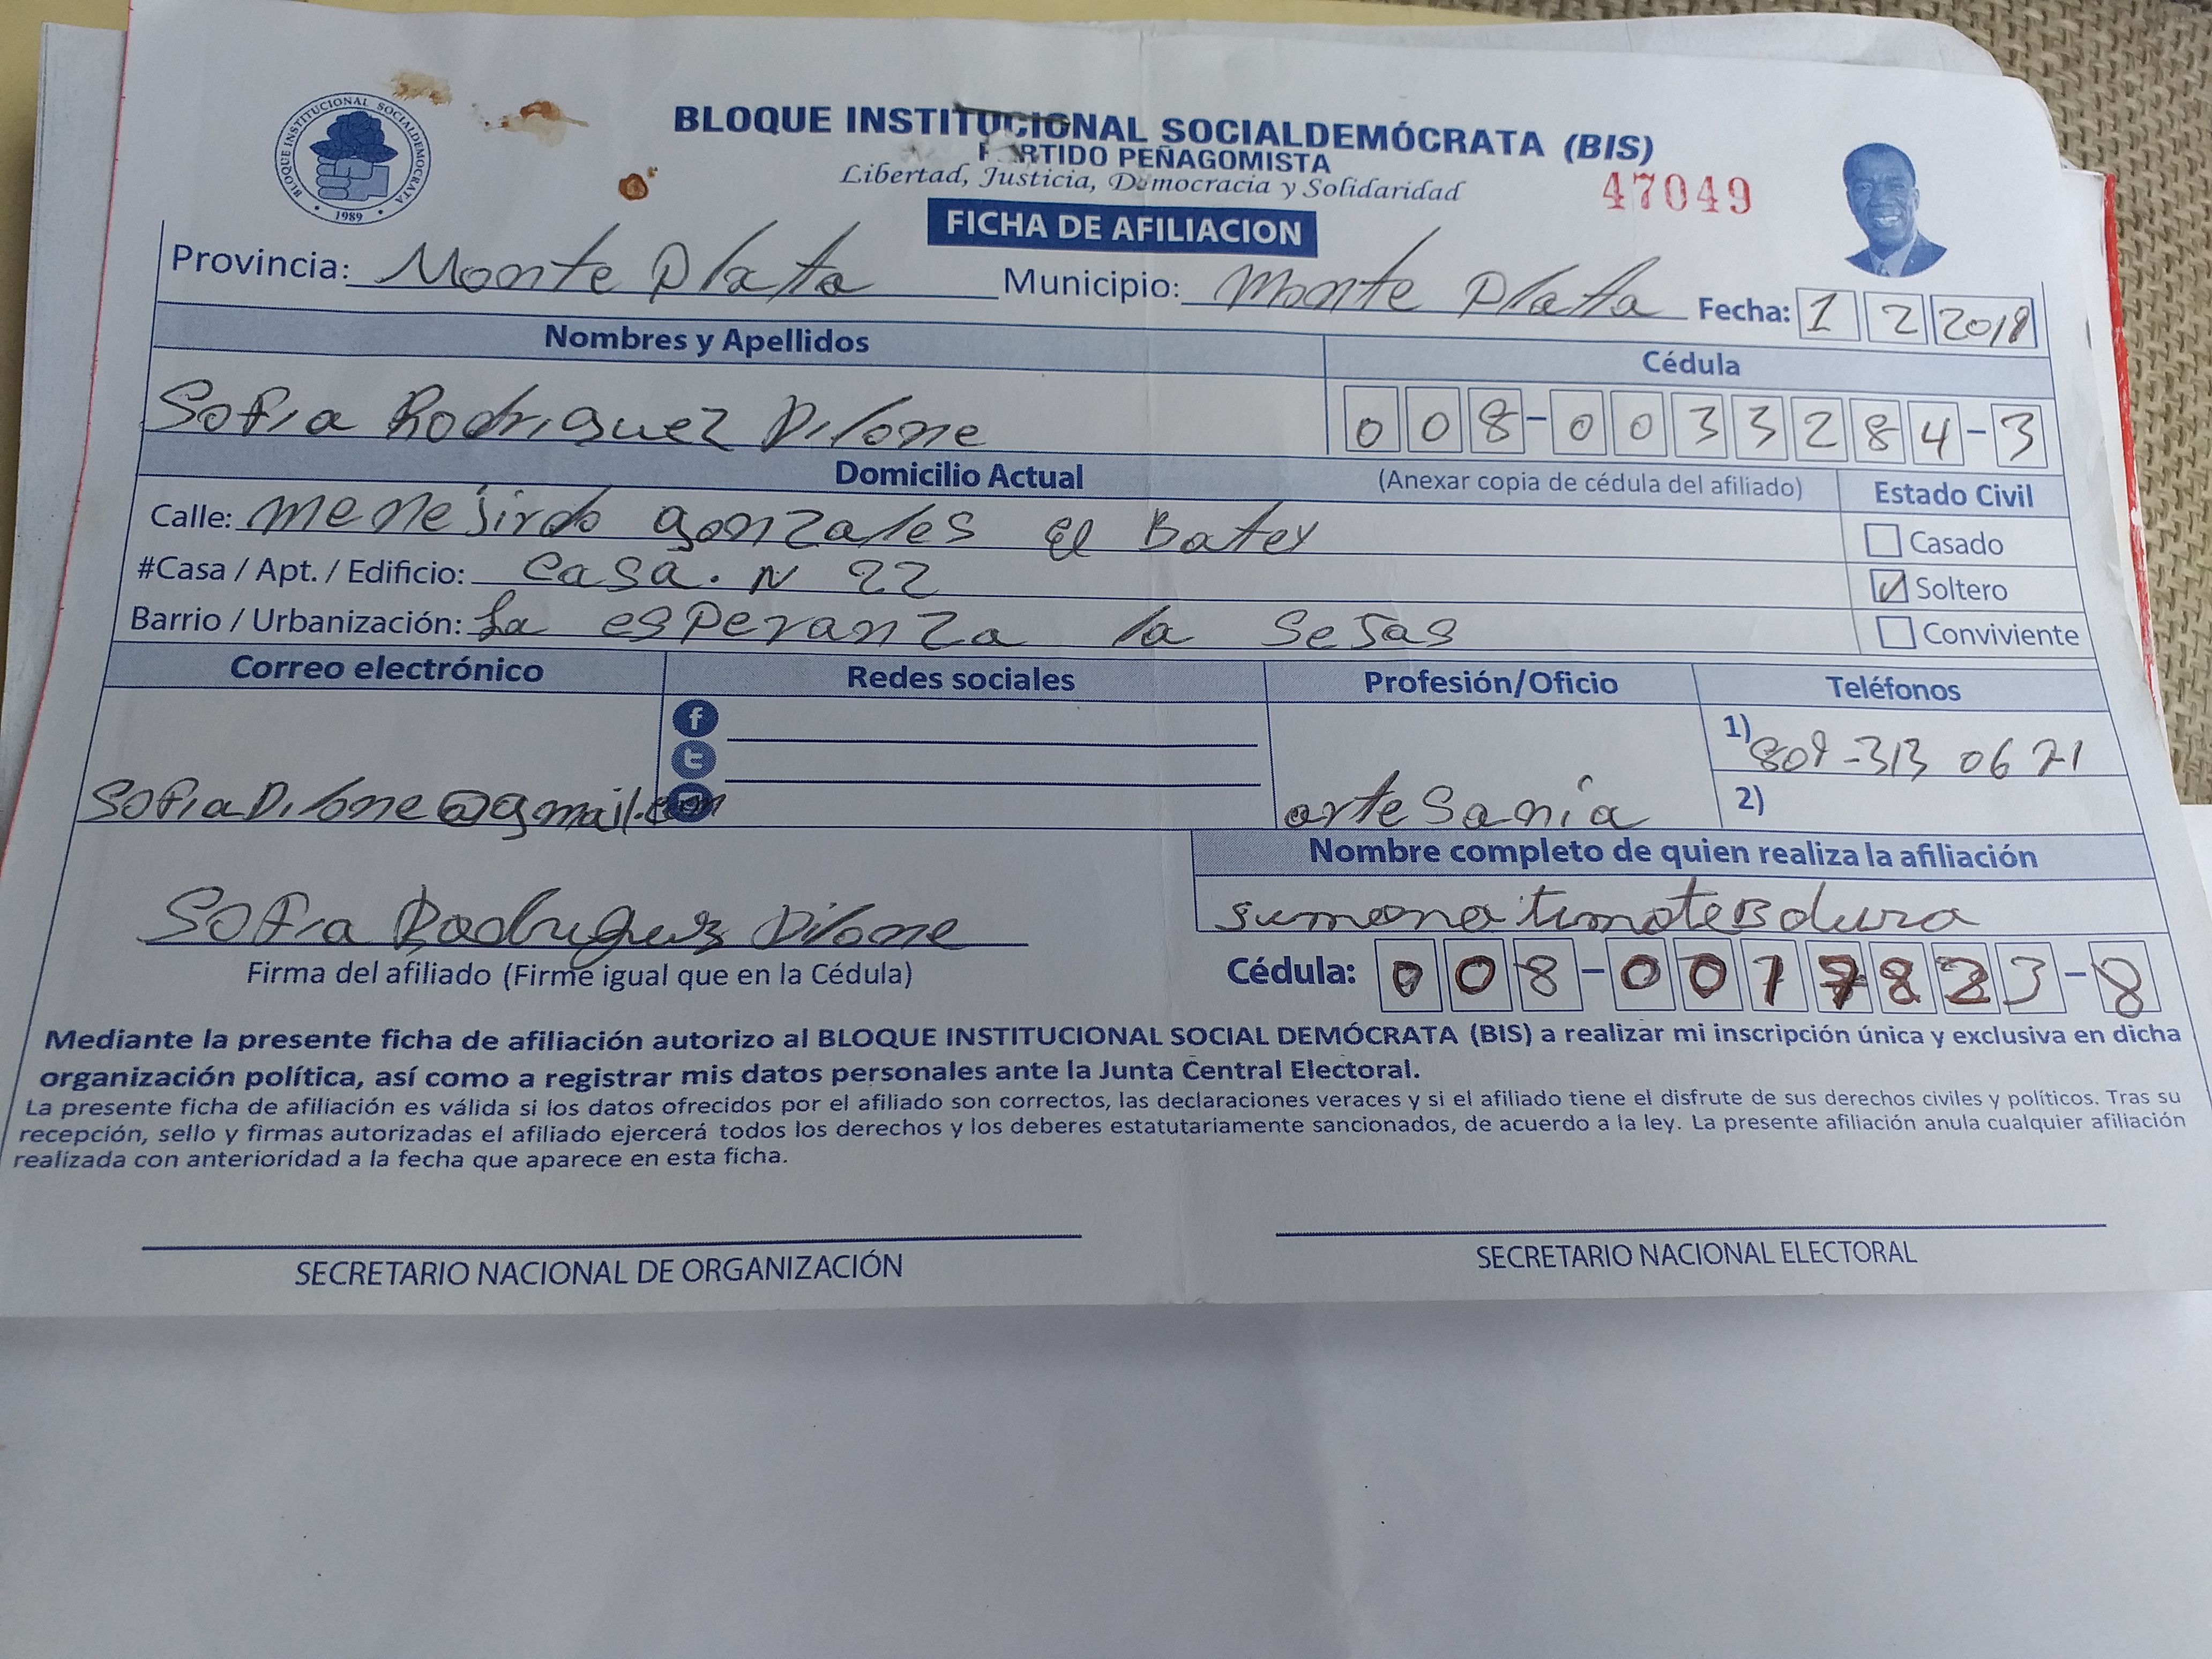 BLOQUE INSTITUCIONAL SOCIALDEMOCRATA
1989
BLOQUE INSTITUCIONAL SOCIALDEMÓCRATA (BIS)
PARTIDO PEÑAGOMISTA
Libertad, Justicia, Democracia y Solidaridad
47049
FICHA DE AFILIACION
Provincia: Monte Plata Municipio: Monte Plata Fecha: 1 2 2018
Nombres y Apellidos Cédula
Sofia Rodriguez Dilone 008-0033284-3
Domicilio Actual (Anexar copia de cédula del afiliado) Estado Civil
Calle: gonzales el Batey
Casado
#Casa / Apt. / Edificio: Casa. N 22
Soltero
Barrio / Urbanización: La esperanza la
Conviviente
Correo electrónico Redes sociales Profesión/Oficio Teléfonos
1) 809-313 0671
2)
SofiaDilone@gmail.com artesania
Nombre completo de quien realiza la afiliación
Sofia Rodriguez Dilone
Firma del afiliado (Firme igual que en la Cédula)
Cédula: 008-0077823-8
Mediante la presente ficha de afiliación autorizo al BLOQUE INSTITUCIONAL SOCIAL DEMÓCRATA (BIS) a realizar mi inscripción única y exclusiva en dicha
organización política, así como a registrar mis datos personales ante la Junta Central Electoral.
La presente ficha de afiliación es válida si los datos ofrecidos por el afiliado son correctos, las declaraciones veraces y si el afiliado tiene el disfrute de sus derechos civiles y políticos. Tras su
recepción, sello y firmas autorizadas el afiliado ejercerá todos los derechos y los deberes estatutariamente sancionados, de acuerdo a la ley. La presente afiliación anula cualquier afiliación
realizada con anterioridad a la fecha que aparece en esta ficha.
SECRETARIO NACIONAL DE ORGANIZACIÓN SECRETARIO NACIONAL ELECTORAL